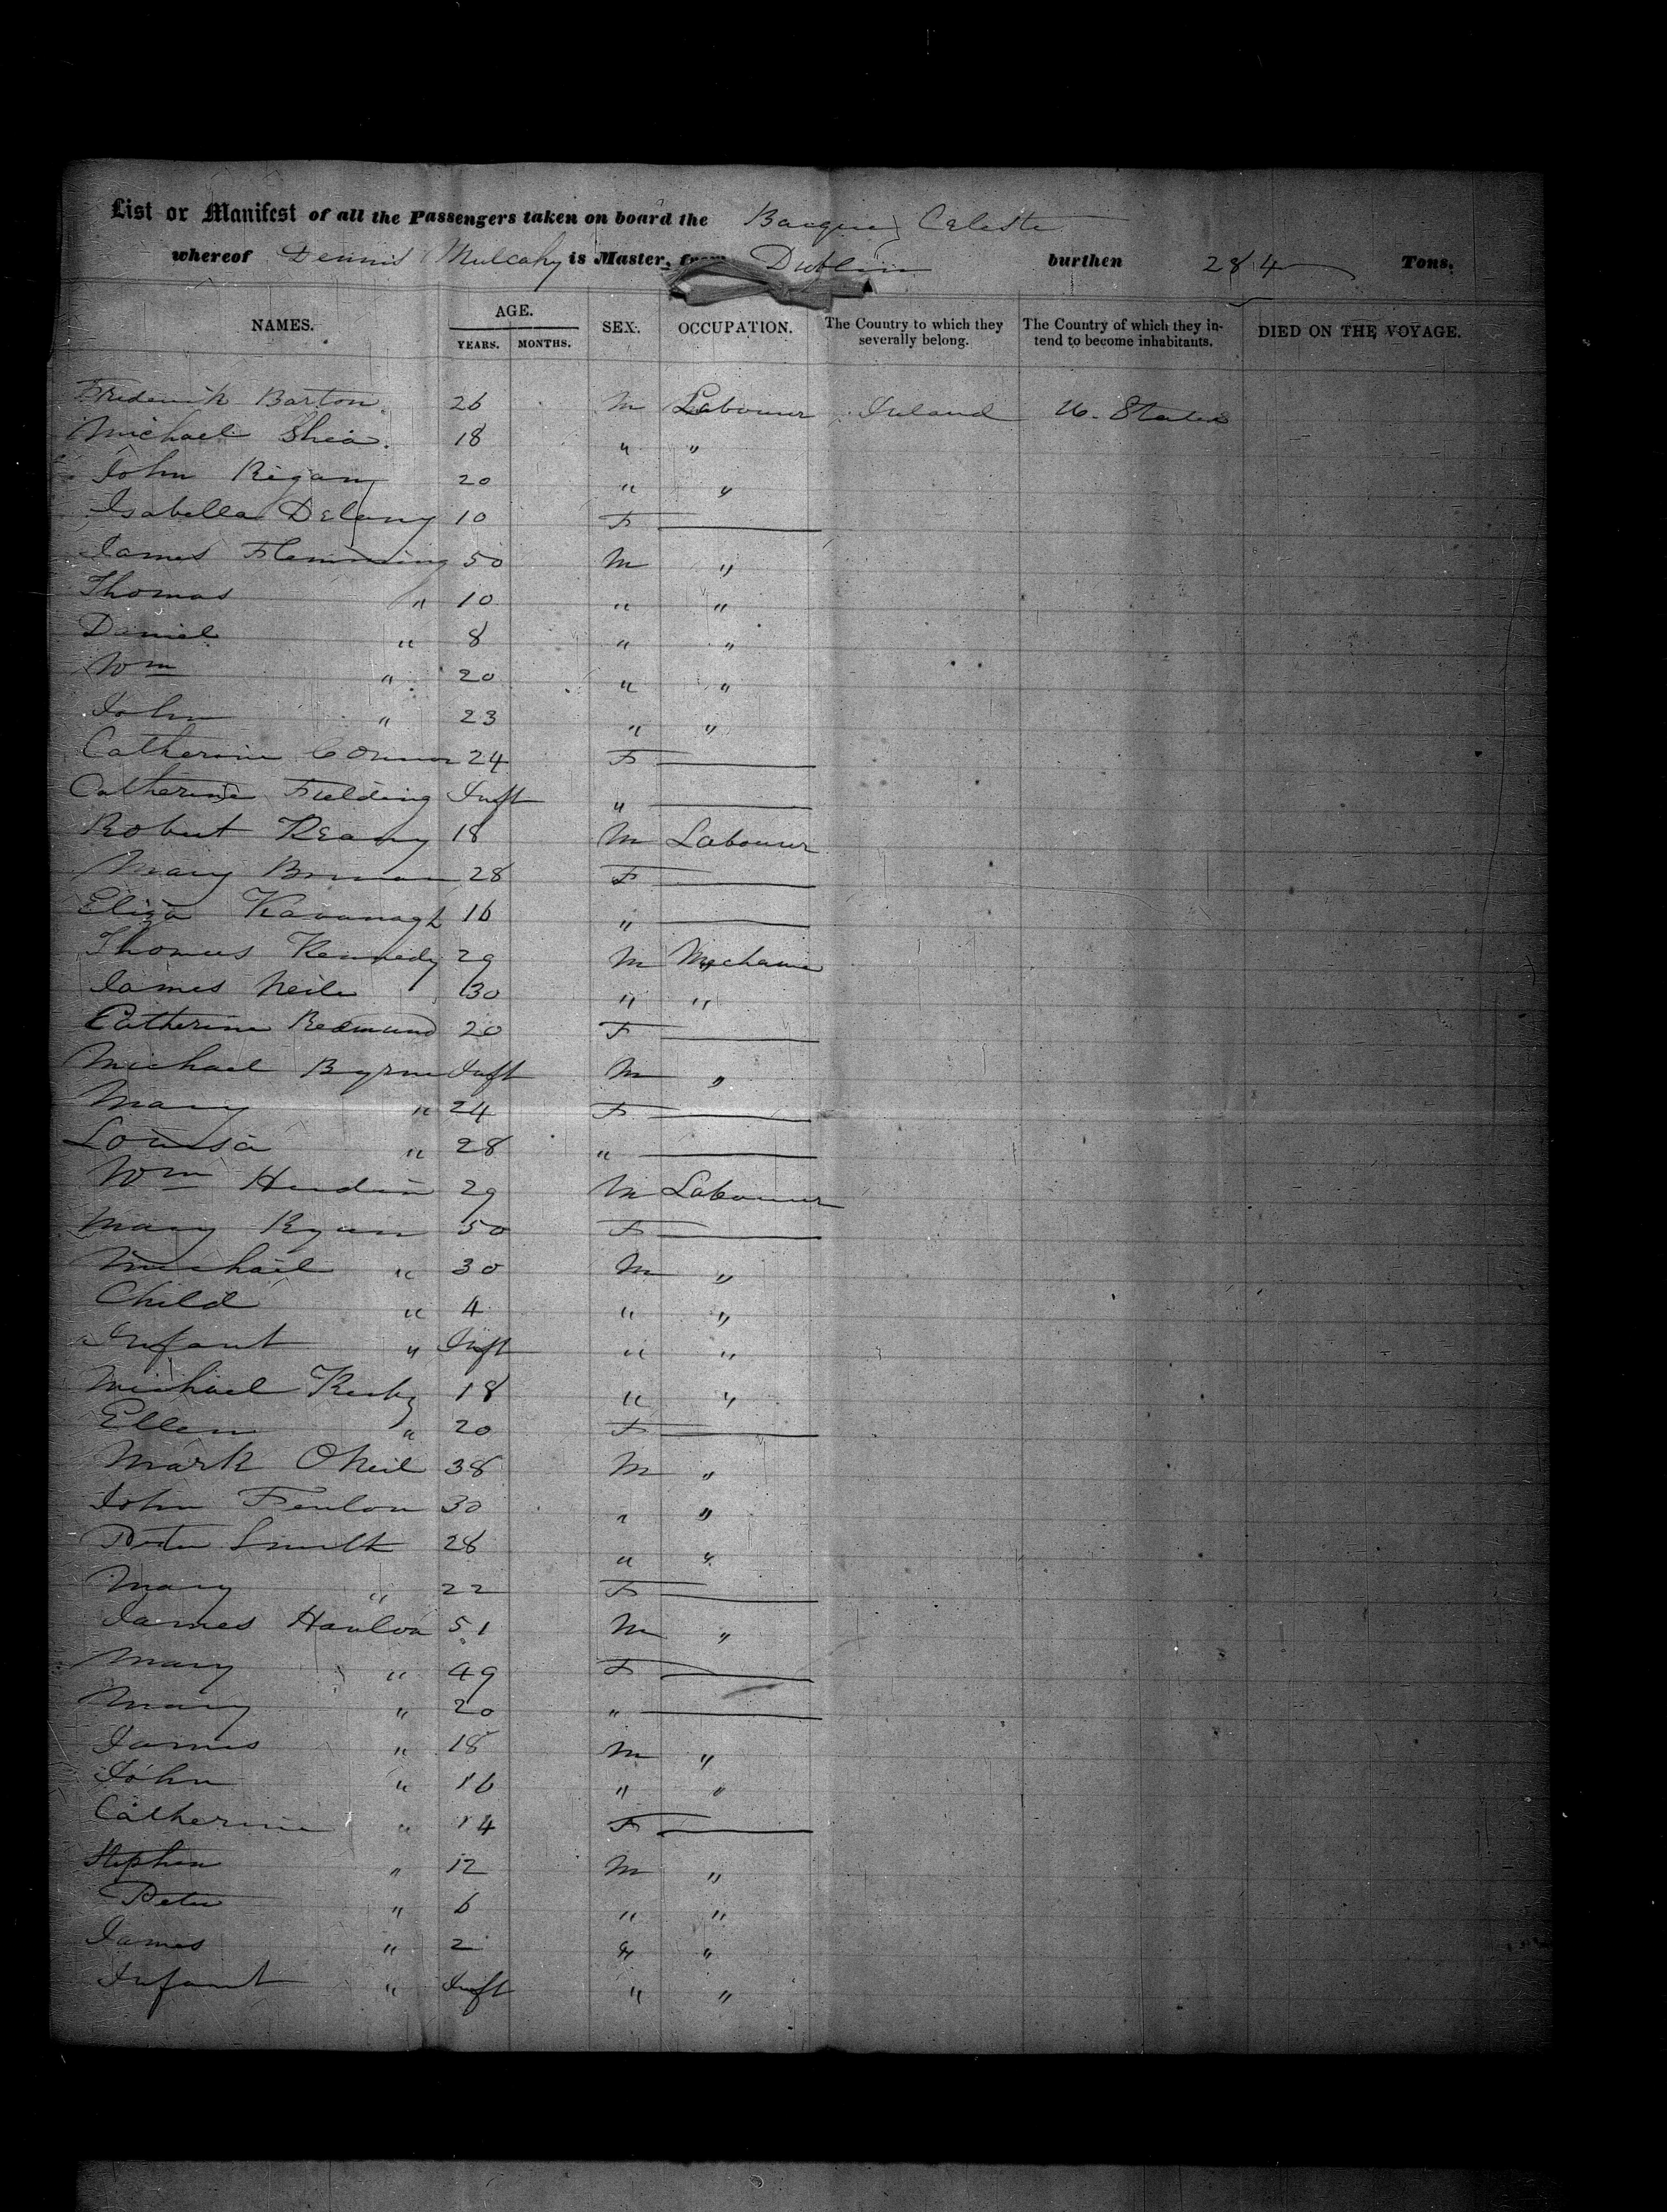 List or Manifest of all the Passengers taken on board the Barque Celeste
whereof Dennis Mulcahy is Master, from Dublin burthen 284 Tons.
NAMES. AGE. YEARS. MONTHS. SEX. OCCUPATION. The Country to which they severally belong. The Country of which they intend to become inhabitants. DIED ON THE VOYAGE.
Frederick Barton. 26 M Labourer Ireland U. States
Michael Shea. 18 " "
John Regan 20 " "
Isabella Delany 10 F
James Flemming 50 M "
Thomas " 10 " "
Daniel " 8 " "
Wm " 20 " "
John " 23 " "
Catherine Connor 24 F
Catherine Fielding Inft "
Robert Keany 18 M Labourer
Mary Brennan 28 F
Eliza Kavanagh 16 "
Thomas Kennedy 29 M Mechanic
James Neile 30 " "
Catherine Redmund 20 F
Michael Byrne Inft M "
Mary " 24 F
Louisa " 28 "
Wm 29 M Labourer
Mary Ryan 50 F
Michael " 30 M "
Child " 4 " "
Infant " Inft " "
Michael Kirby 18 " "
Ellen " 20 F
Mark ONeil 38 M "
John Fenlon 30 " "
Peter Smith 28 " "
Mary " 22 F
James Hanlon 51 M "
Mary " 49 F
Mary " 20 "
James " 18 M "
John " 16 " "
Catherine " 14 F
Stephen " 12 M "
Peter " 6 " "
James " 2 " "
Infant " Inft " "